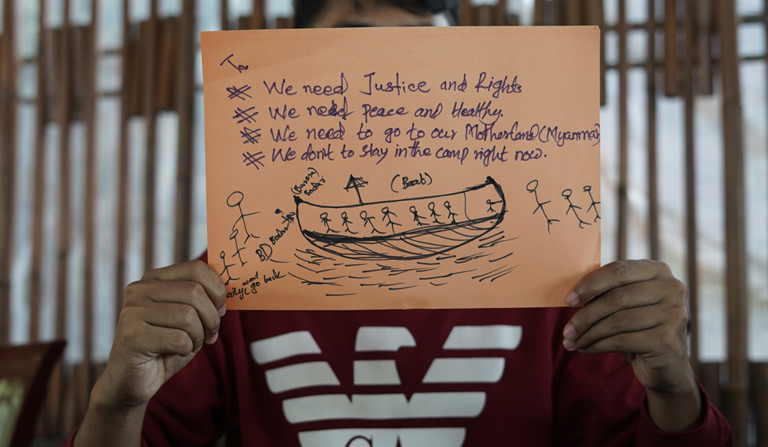 To
We need Justice and Rights
We need peace and Healthy.
We need to go to our Motherland (Myanmar)
We don't to stay in the camp right now.
(Boat)
BD
want
go back
GA